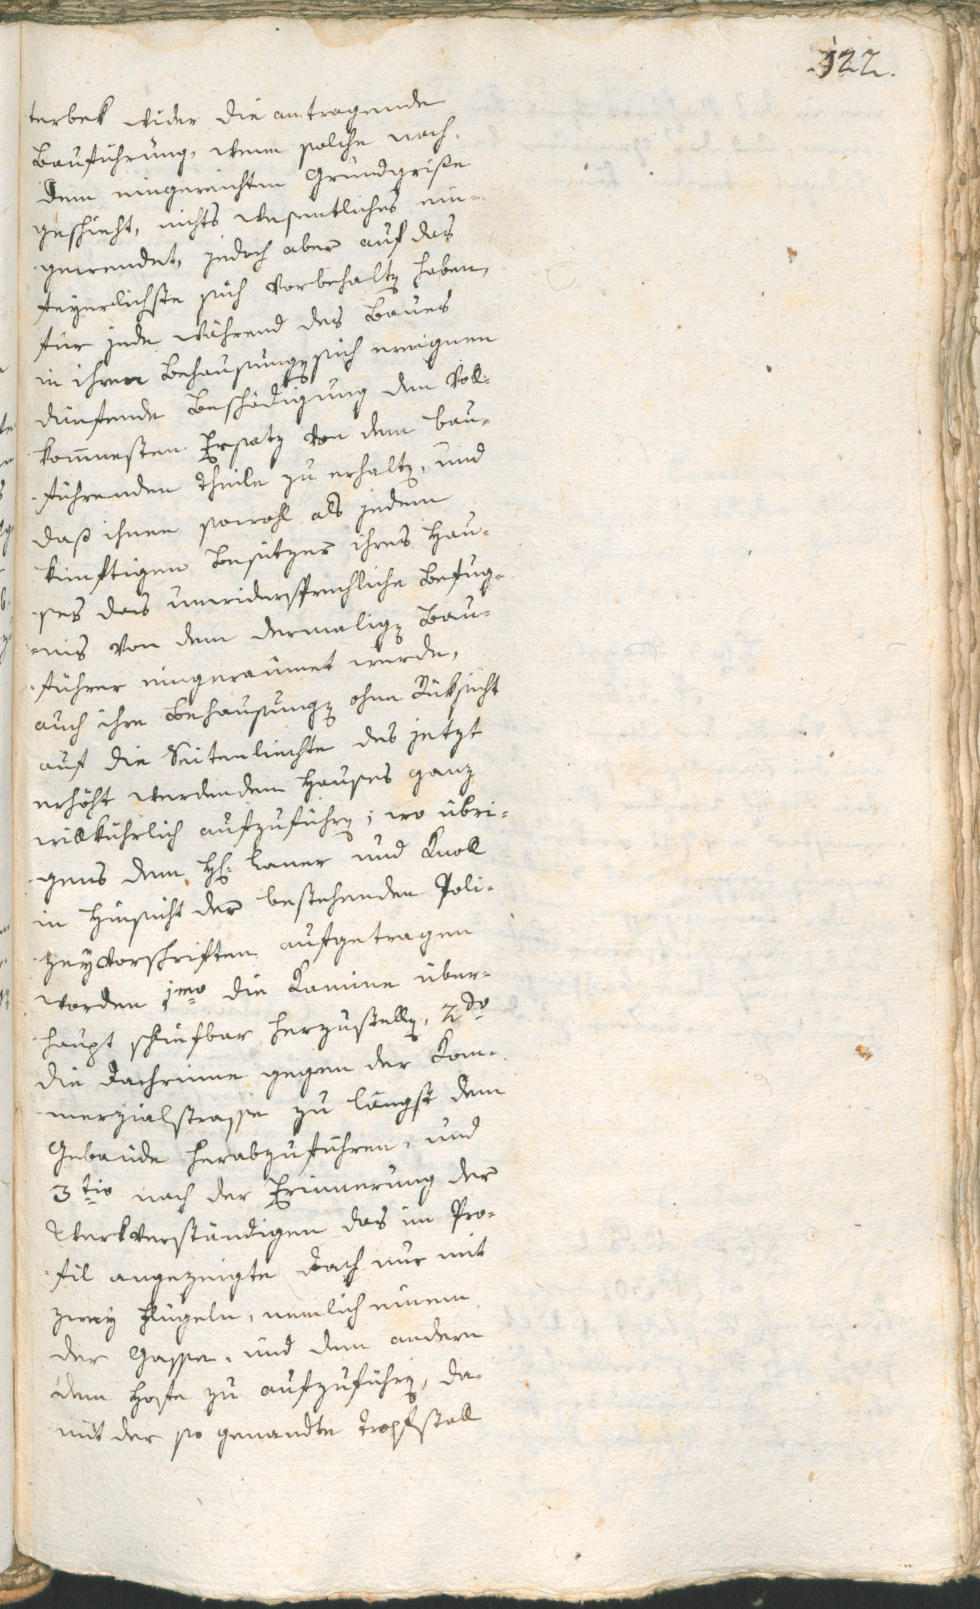 322.
terbek wider die antragende
Bauführung, wenn solche nach
dem eingereichten Grundrisse
geschieht, nichts wesentliches ein-
gewendet, jedoch aber auf das
feyerlichste sich vorbehaltn haben,
für jede während des Baues
in ihren Behausungn sich ereignen
dürfende Beschädigung den voll-
kom̅nesten Ersatz von dem bau-
führenden Theile zu erhaltn, und
daß ihnen sowohl als jedem
künftigen Besitzer ihres Hau-
ses das unwidersprechliche Befug-
nis von dem dermalign Bau-
führer eingeraumet werde,
auch ihre Behausungn ohne Rüksicht
auf die Seitenliechte des jetzt
erhöht werdenden Hauses ganz
willkührlich aufzuführn; wo übri-
gens dem H: Laner und Knoll
in Hinsicht der bestehenden Poli-
zeyvorschriften aufgetragen
worden 1mo die Kamine über-
haupt schliefbar herzustelln, 2do
die Dachrinne gegen der Kom-
merzialstrasse zu längst dem
Gebäude herabzuführen, und
3tio nach der Erinnerung der
Werkverständigen das im Pro-
fil angezeigte Dach nur mit
zwey Flügeln, nemlich einem
der Gasse, und dem andern
dem Hofe zu aufzuführn, da-
mit der so genandte Tropfstall